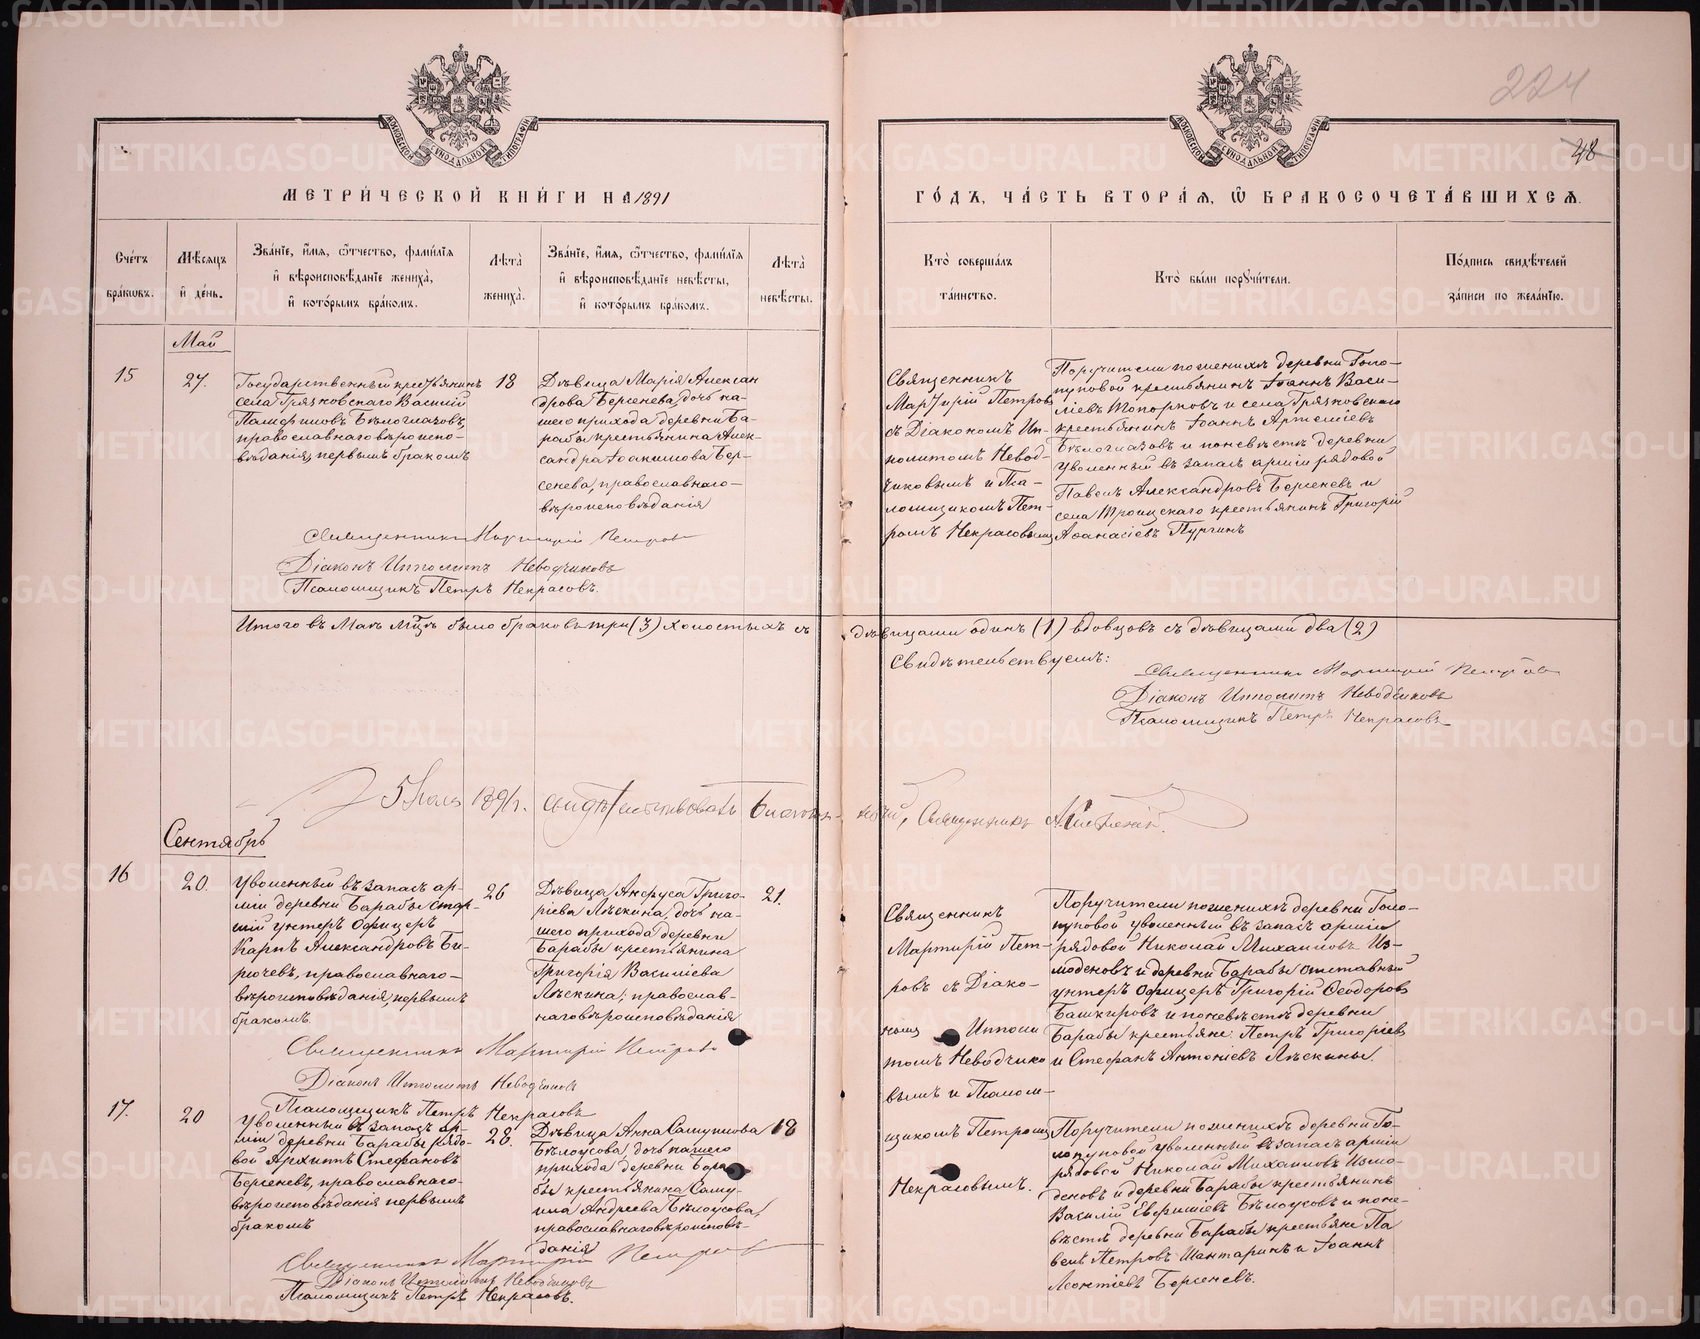 224
48
МЕТРИ́ЧЕСКОЙ КНИ́ГИ НА 1891
ГО́ДЪ, ЧА́СТЬ ВТОРА́Я, Ѡ БРАКОСОЧЕТА́ВШИХСЯ.
Сче́тъ бра́кωвъ.
Мѣ́сяцъ и де́нь.
Зва́нїе, и́мя, ѻ́тчество, фами́лїя и вѣроисповѣ́данїе жениха̀, и кото́рымъ бра́комъ.
Лѣ́та жениха̀.
Зва́нїе, и́мя, ѻ́тчество, фами́лїя и вѣроисповѣ́данїе невѣ́сты, и кото́рымъ бра́комъ.
Лѣ́та невѣ́сты.
Кто̀ соверша́лъ та́инство.
Кто̀ бы́ли порꙋчи́тели.
По́дпись свидѣ́телей за́писи по жела́нїю.
Май
15
27.
Государственный крестьянинъ
села Грязновскаго Василий
Памфиловъ Бѣлоглазовъ,
православнаго вѣроиспо-
вѣданія, первымъ бракомъ
18
Дѣвица Марія Алексан
дрова Берсенева, дочь на-
шего прихода деревни Ба-
рабы крестьянина Алек-
сандра Іоакимова Бер-
сенева, православнаго
вѣроисповѣданія
Священникъ
Мартирій Петровъ
съ Діакономъ Ип-
политомъ Невод-
чиковымъ и Пса-
ломщикомъ Пет-
ромъ Некрасовымъ
Поручители по женихѣ деревни Голо-
пуповой крестьянинъ Іоаннъ Васи-
ліевъ Топорковъ и села Грязновскаго
крестьянинъ Іоаннъ Артеміевъ
Бѣлоглазовъ и по невѣстѣ деревни
уволенный въ запасъ арміи рядовой
Павелъ Александровъ Берсеневъ и
села Троицкаго крестьянинъ Григорій
Аѳанасіевъ Пургинъ
Священникъ Мартирій Петровъ
Діаконъ Ипполитъ Неводчиковъ
Псаломщикъ Петръ Некрасовъ.
Итого въ Маѣ мцѣ было браковъ три (3) холостыхъ съ дѣвицами одинъ (1) вдовцовъ съ дѣвицами два (2)
Свидѣтельствуемъ:
Священникъ Мартирій Петровъ
Діаконъ Ипполитъ Неводчиковъ
Псаломщикъ Петръ Некрасовъ
5 Іюля 1891 г. свидѣтельствовалъ Благочинный, Священникъ
Сентябрь
16
20.
Уволенный въ запасъ ар-
міи деревни Барабы стар-
шій унтеръ офицеръ
Карпъ Александровъ Би-
рючевъ, православнаго
вѣроисповѣданія, первымъ
бракомъ.
26
Дѣвица Анфуса Григо-
ріева Лѣскина, дочь на-
шего прихода деревни
Барабы крестьянина
Григорія Василіева
Лѣскина, православ-
наго вѣроисповѣданія
21.
Священникъ
Мартирій Пет-
ровъ съ Діако-
номъ Ипполи
томъ Неводчико
вымъ и Псалом-
щикомъ Петромъ
Некрасовымъ.
Поручители по женихѣ деревни Голо-
пуповой уволенный въ запасъ арміи
рядовой Николай Михаиловъ Из-
моденовъ и деревни Барабы отставный
унтеръ офицеръ Григорій Ѳеодоровъ
Башкировъ и по невѣстѣ деревни
Барабы крестьяне: Петръ Григоріевъ
и Стефанъ Антоніевъ Лѣскины.
Священникъ Мартирій Петровъ
Діаконъ Ипполитъ Неводчиковъ
Псаломщикъ Петръ Некрасовъ
17.
20
Уволенный въ запасъ ар-
міи деревни Барабы рядо-
вой Архиппъ Стефановъ
Берсеневъ, православнаго
вѣроисповѣданія первымъ
бракомъ
28.
Дѣвица Анна Самуилова
Бѣлоусова, дочь нашего
прихода деревни Бара
бы крестьянина Саму-
ила Андреева Бѣлоусова,
православнаго вѣроисповѣ-
данія
18
Поручители по женихѣ деревни Го-
лопуповой уволенный въ запасъ арміи
рядовой Николай Михаиловъ Измо-
деновъ и деревни Барабы крестьянинъ
Василій Евфиміевъ Бѣлоусовъ и по не-
вѣстѣ деревни Барабы крестьяне Па
велъ Петровъ Шантаринъ и Іоаннъ
Леонтіевъ Берсеневъ.
Священникъ Мартирій Петровъ
Діаконъ Ипполитъ Неводчиковъ
Псаломщикъ Петръ Некрасовъ.
METRIKI.GASO-URAL.RU